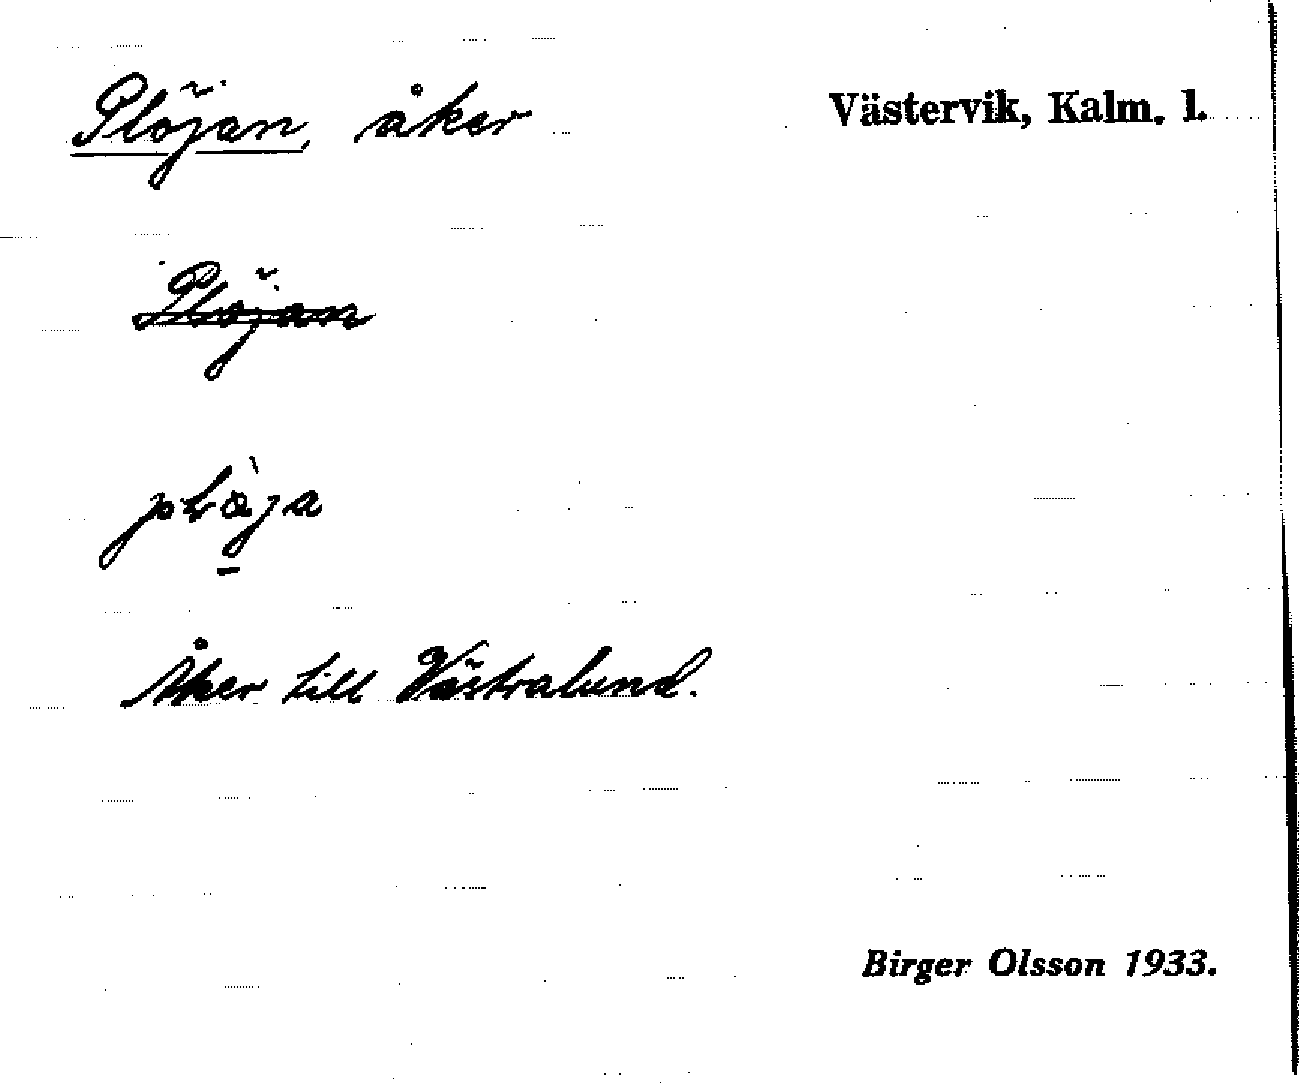 Plöjan, åker
Västervik, Kalm. l.
Plöjan
Åker till Västralund.
Birger Olsson 1933.